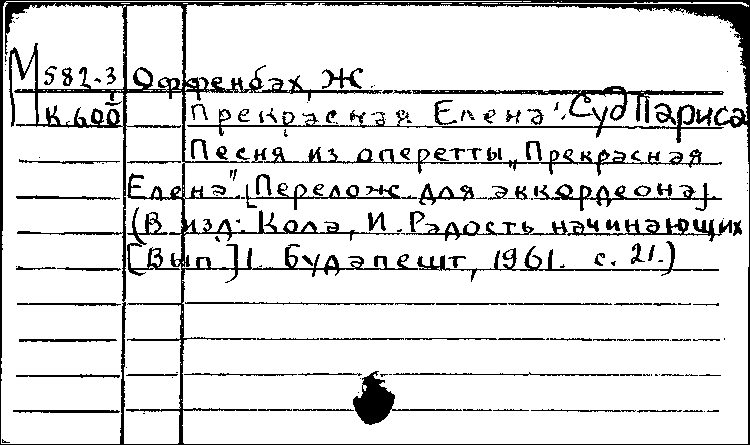 М 582-3 Оффенбах, Ж.
К.600 Прекрасная Елена". Суд Париса
Песня из оперетты „Прекрасная
Елена". [Перелож. для аккордеона].
(В изд.: Кола, И. Радость начинающих
[Вып.] 1. Будапешт, 1961. с. 21.)